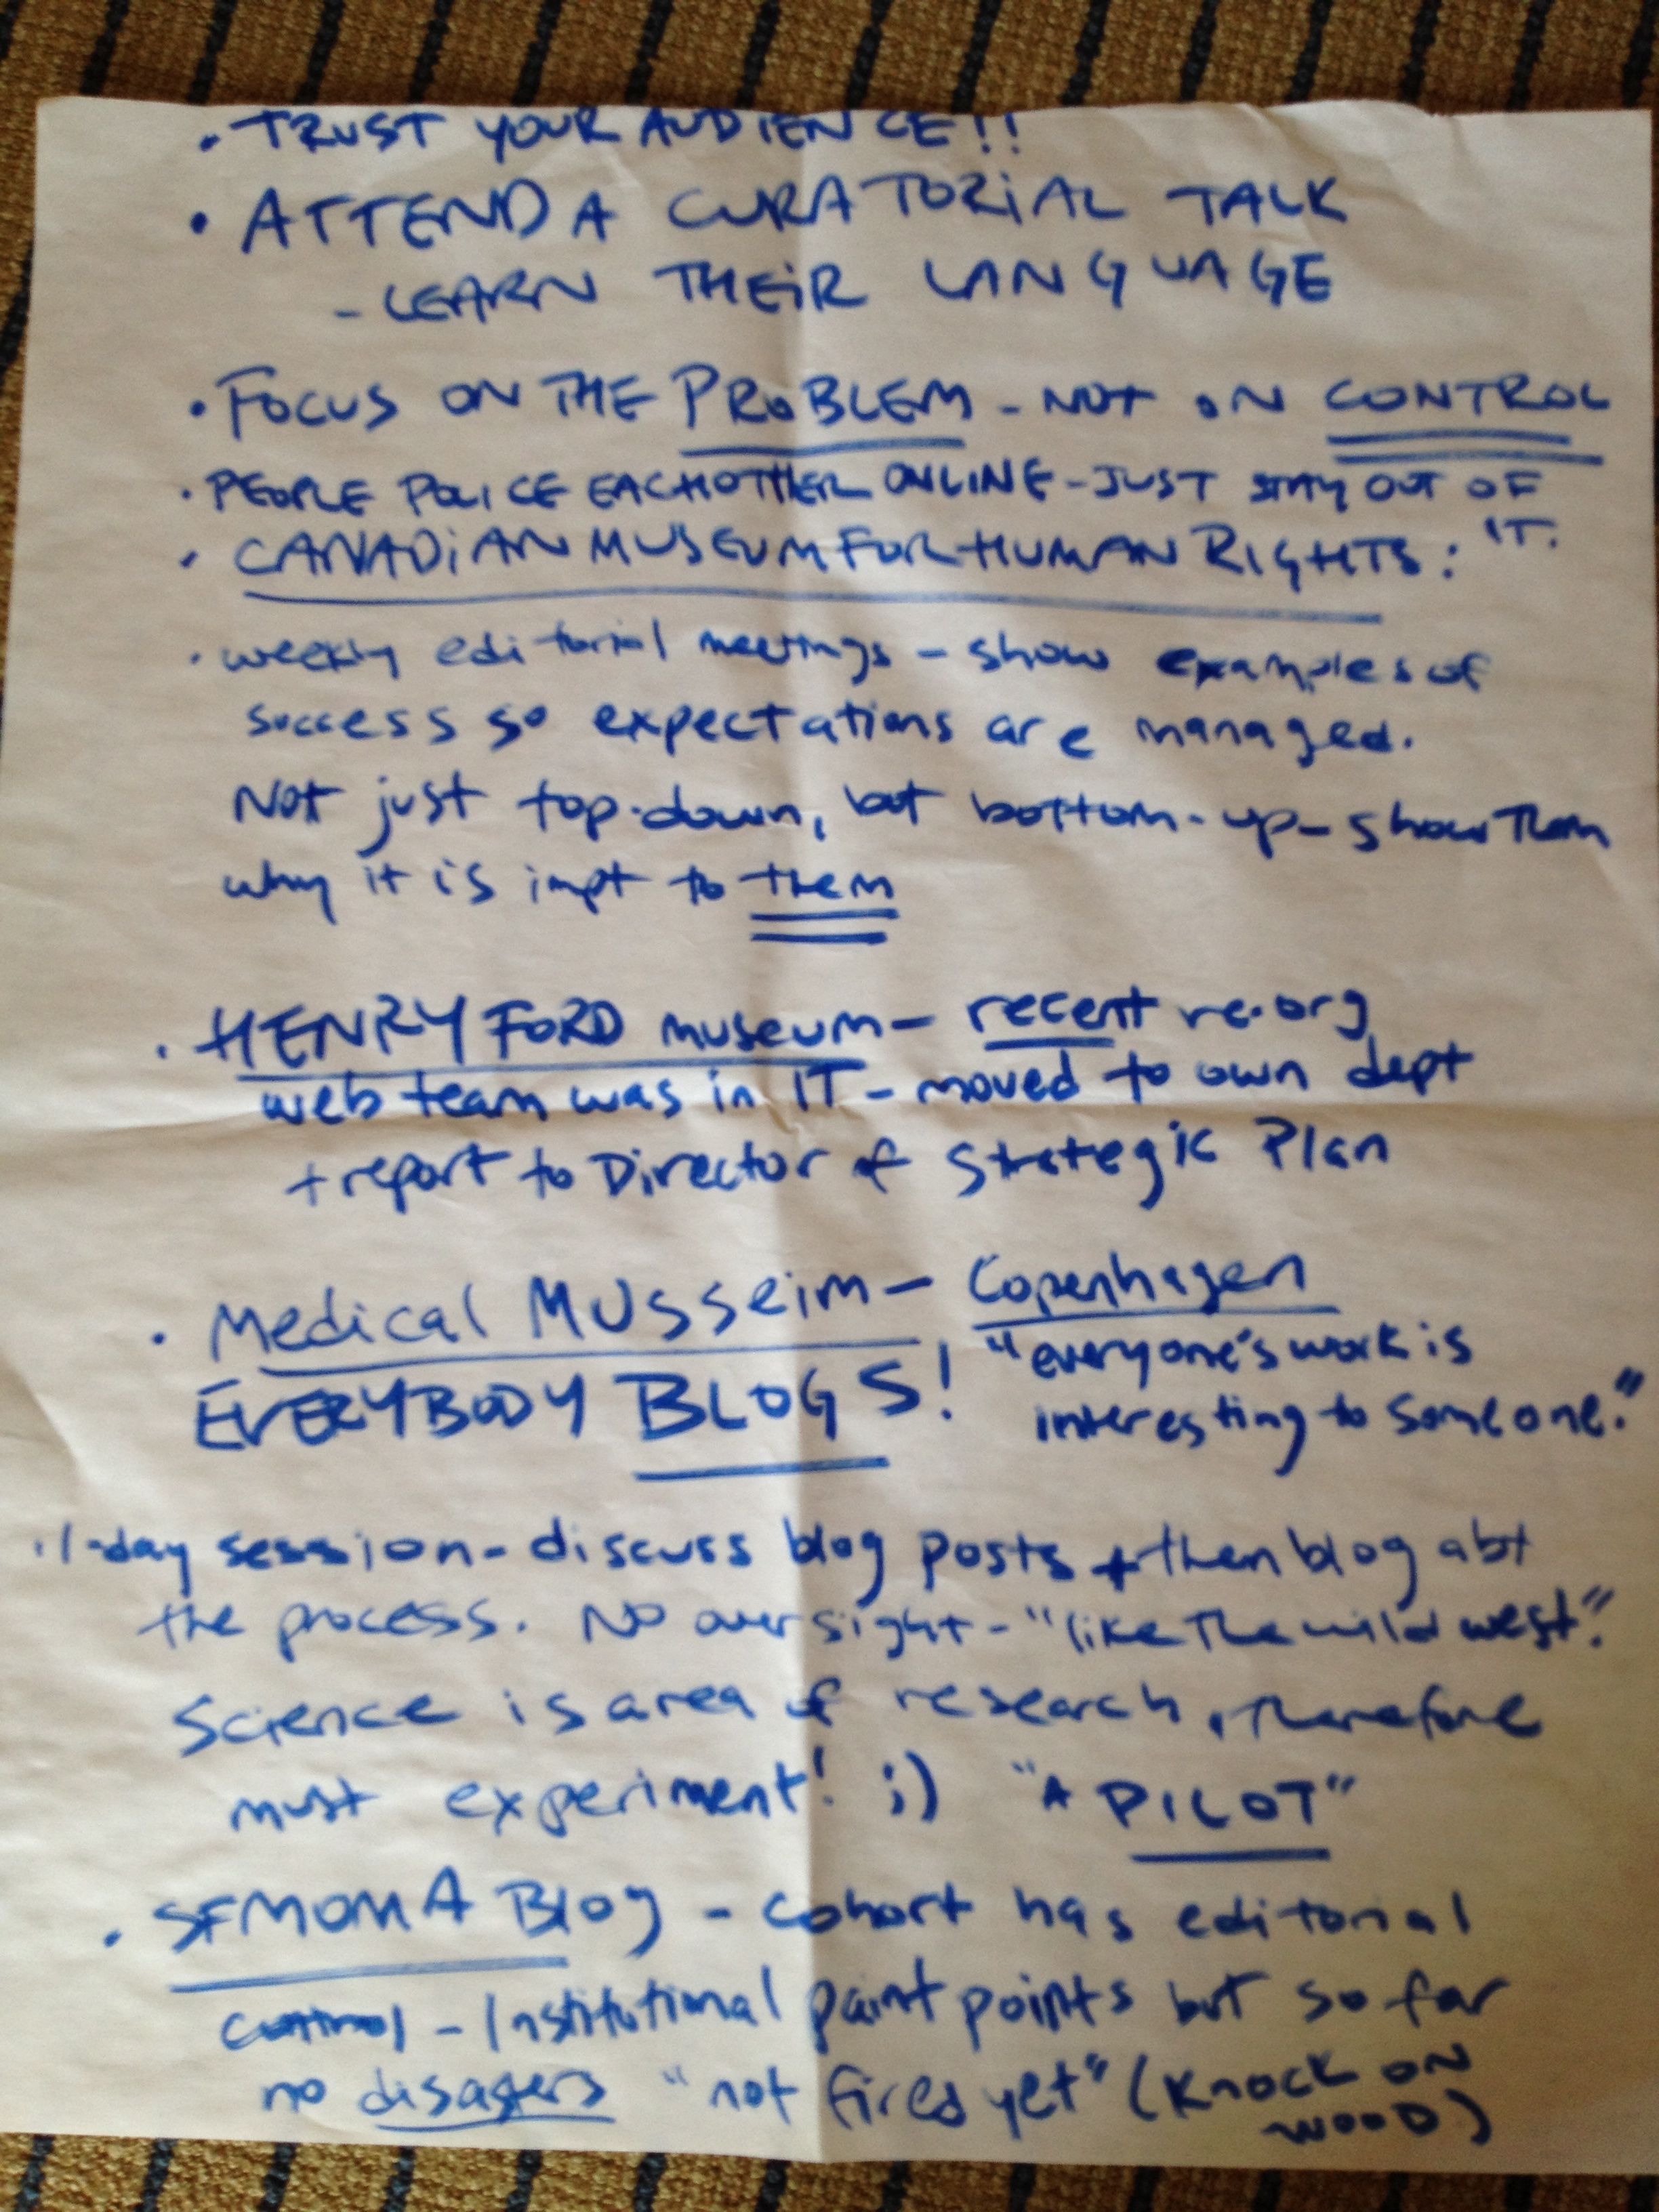 • TRUST YOUR AUDIENCE!!
• ATTEND A CURATORIAL TALK
- LEARN THEIR LANGUAGE
• FOCUS ON THE PROBLEM - NOT ON CONTROL
• PEOPLE POLICE EACHOTHER ONLINE - JUST STAY OUT OF
IT.
• CANADIAN MUSEUM FOR HUMAN RIGHTS:
• weekly editorial meetings - show examples of
success so expectations are managed.
Not just top-down, but bottom-up - show Them
why it is impt to them
• HENRY FORD museum - recent re-org
web team was in IT - moved to own dept
+ report to Director of Strategic Plan
• Medical Musseim - Copenhagen
EVERYBODY BLOGS! "everyone's work is
interesting to someone."
• 1-day session - discuss blog posts + then blog abt
the process. No oversight - "like The wild west".
Science is area of research, Therefore
must experiment! ;) "A PILOT"
• SFMOMA Blog - cohort has editorial
control - Institutional paint points but so far
no disasters "not fired yet" (KNOCK ON
WOOD)